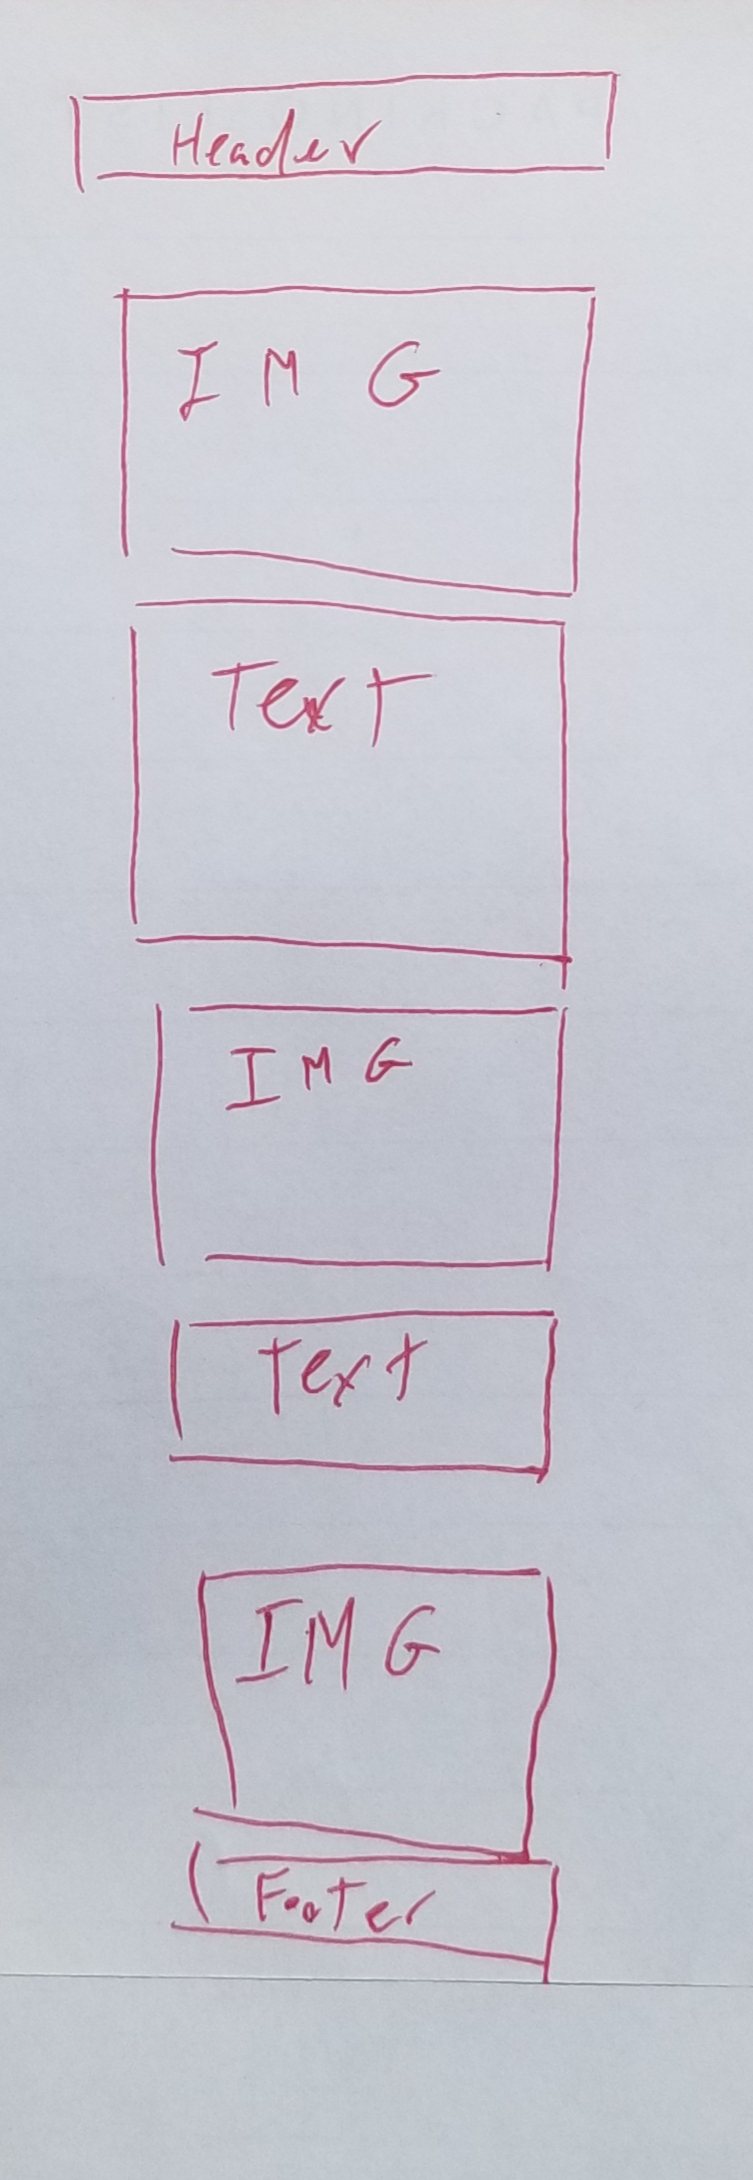 Header
IMG
Text
IMG
Text
IMG
Footer